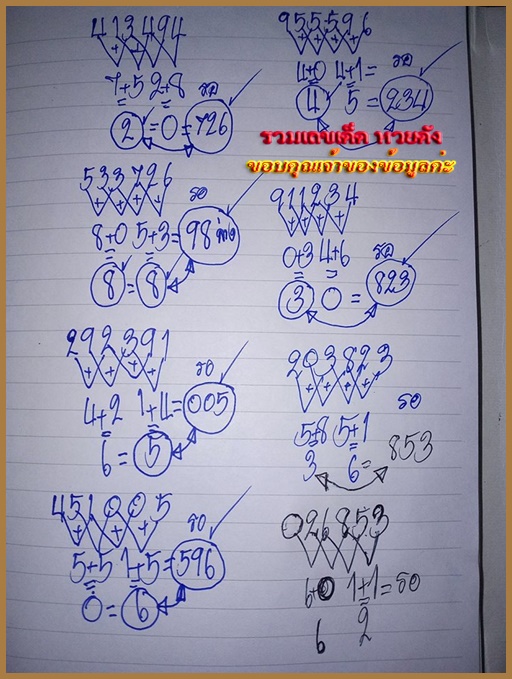 413494
+ + +
7+5 2+8 รอ
2 = 0 = 726
533726
+ + +
รอ
8+0 5+3 = 98
8 = 8
292391
+ + +
รอ
4+2 1+4 = 005
6 = 5
451005
+ + +
รอ
5+5 1+5 = 596
0 = 6
955596
+ + + +
4+0 4+1= รอ
4 5 = 234
รวมเลขเด็ด หวยดัง
ขอบคุณเจ้าของข้อมูลค่ะ
911234
+ + +
0+3 4+6 รอ
3 0 = 823
203823
+ + +
รอ
5+8 5+1
3 6= 853
026853
6+0 1+1= รอ
6 2